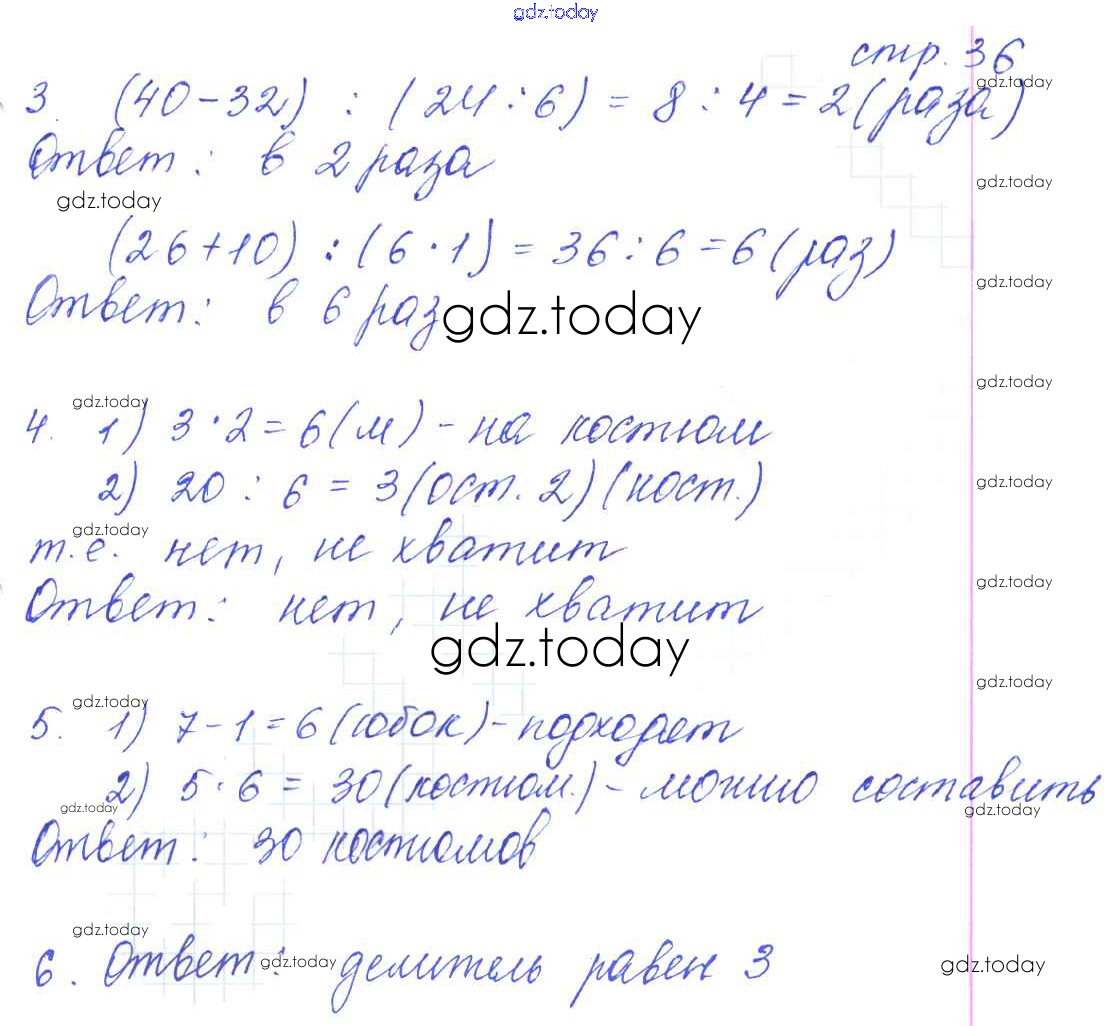 gdz.today
стр. 36
gdz.today
3. (40-32) : (24:6) = 8 : 4 = 2 (раза)
Ответ: в 2 раза
gdz.today
gdz.today
(26+10) : (6·1) = 36 : 6 = 6 (раз)
gdz.today
Ответ: в 6 раз
gdz.today
gdz.today
gdz.today
4. 1) 3·2 = 6 (м) - на костюм
2) 20 : 6 = 3 (ост. 2) (кост.)
gdz.today
gdz.today
т.е. нет, не хватит
gdz.today
Ответ: нет, не хватит
gdz.today
gdz.today
gdz.today
5. 1) 7-1 = 6 (юбок) - подходят
2) 5·6 = 30 (костюм.) - можно составить
gdz.today
gdz.today
Ответ: 30 костюмов
gdz.today
6. Ответ: делитель равен 3
gdz.today
gdz.today